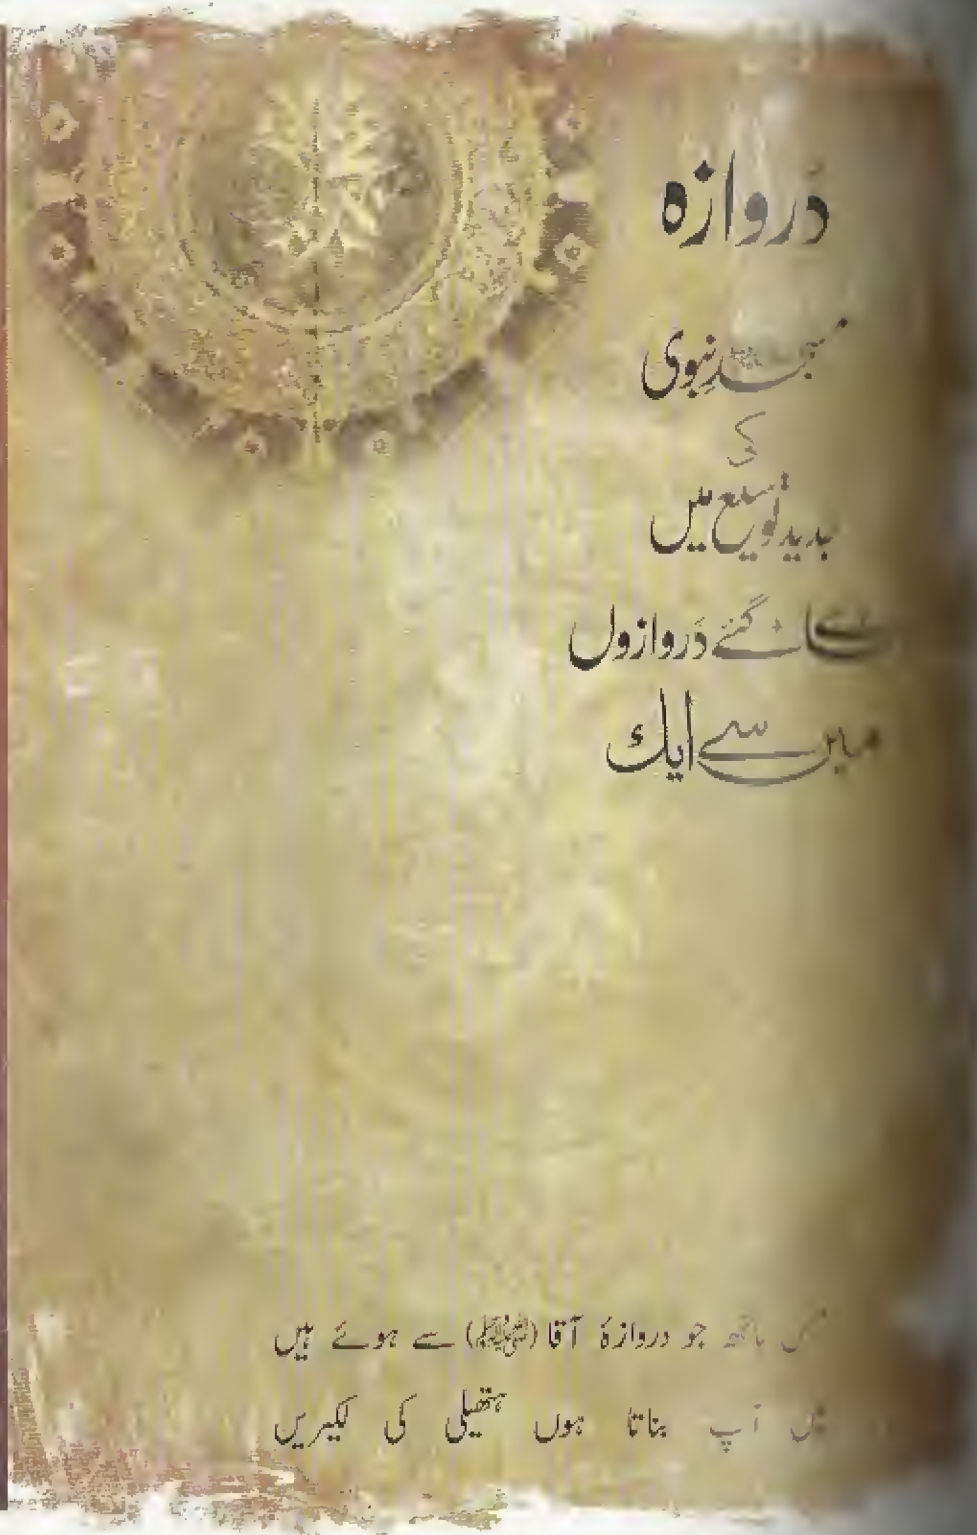 دروازہ
مسجدِ نبوی
کی
جدید توسیع میں
گئے دروازوں
میں سے ایک
مس ہاتھ جو دروازۂ آقا (ﷺ) سے ہوئے ہیں
میں آپ بناتا ہوں ہتھیلی کی لکیریں